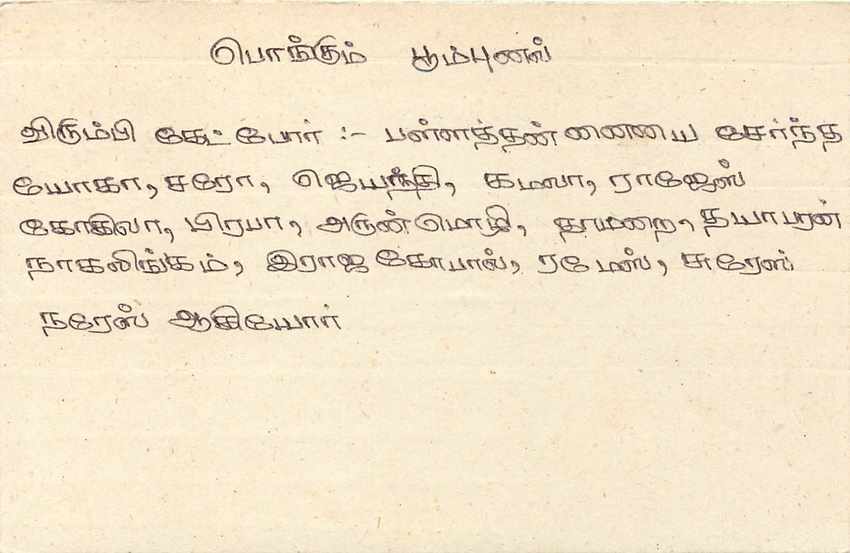 பொங்கும் பூம்புனல்
விரும்பி கேட்போர் :- பள்ளத்தன்னையை சேர்ந்த
யோகா, சரோ, ஜெயந்தி, கமலா, ராஜேஸ்
கோகிலா, பிரபா, அருண்மொழி, தாமறை, தயாபரன்
நாகலிங்கம், இராஜகோபால், ரமேஸ், சுரேஸ்
நரேஸ் ஆகியோர்